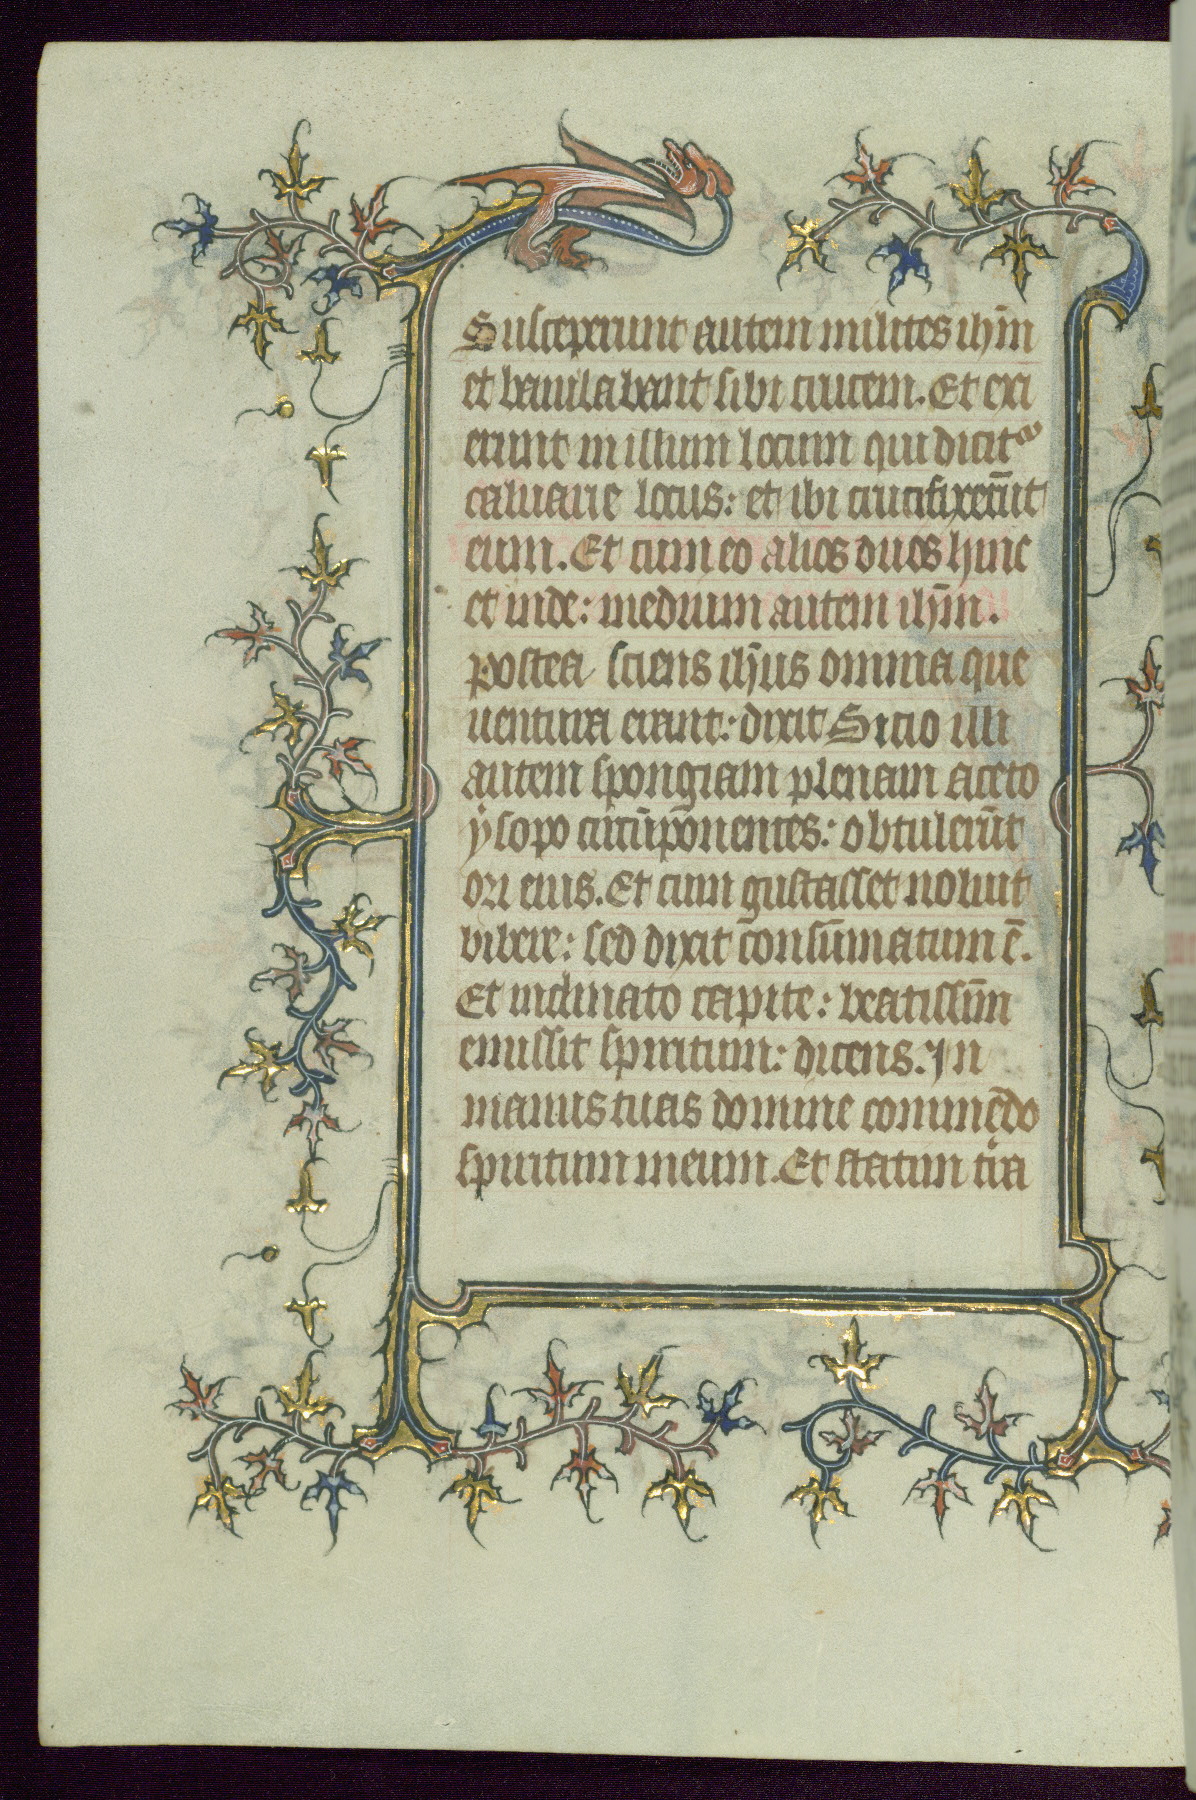 Susceperunt autem milites ihm̄
et baiulabant sibi crucem. Et exi
erunt in illum locum qui dicit᷑
caluarie locus: et ibi crucifixerūt
eum. Et cum eo alios duos hinc
et inde: medium autem ihm̄.
postea sciens ihūs omnia que
uentura erant: dixit Sitio illi
autem spongiam plenam aceto
ẏsopo circūponentes: obtulerūt
ori eius. Et cum gustasset noluit
bibere: sed dixit consūmatum ē.
Et inclinato capite: beatissim̄
emissit spiritum: dicens. In
manus tuas domine commēdo
spiritum meum. Et statim tra